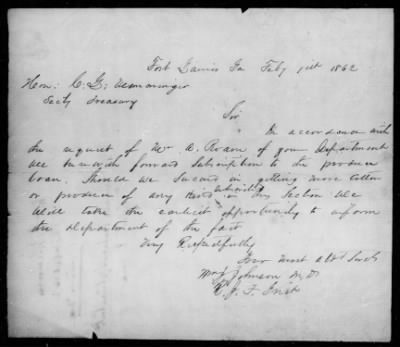 Fort Gaines Ga Feby 1st 1862
Hon. C. G. Memminger
Secty Treasury
Sir
In accordance with
the request of Mr A. Roane of your Department
we herewith forward Subscription to the produce
loan. Should we Succeed in getting more Cotton
or produce of any kind subscribed in this Section we
will take the earliest opportunity to inform
the department of the fact
Very Respectfully
Your most obt Servts
Johnson M. D.
J. F.